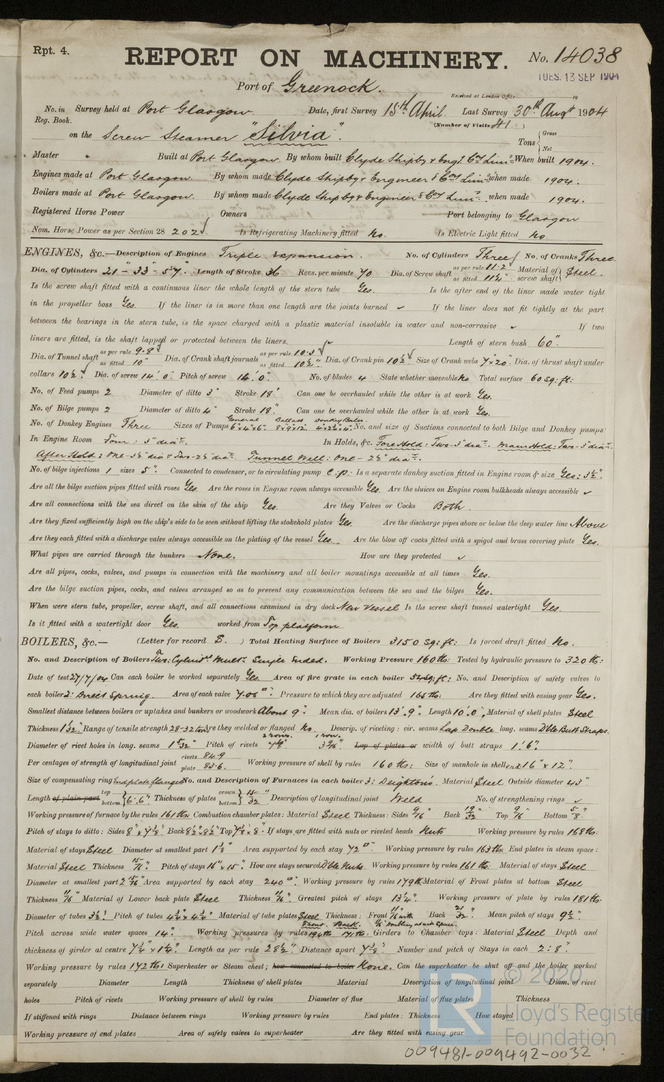 Rpt. 4.
REPORT ON MACHINERY. No. 14038
TUES. 13 SEP 1904
Port of Greenock.
Received at London Office
No. in Survey held at Port Glasgow Date, first Survey 15th April Last Survey 30th Augt 1904
Reg. Book. (Number of Visits 41)
on the Screw Steamer "Silvia" Tons { Gross Net
Master Built at Port Glasgow By whom built Clyde Shipbg & Engg Coy Limd When built 1904.
Engines made at Port Glasgow By whom made Clyde Shipbg & Engineerg Coy Limd when made 1904.
Boilers made at Port Glasgow By whom made Clyde Shipbg & Engineerg Coy Limd when made 1904.
Registered Horse Power Owners Port belonging to Glasgow
Nom. Horse Power as per Section 28 202 Is Refrigerating Machinery fitted No Is Electric Light fitted No
ENGINES, &c.—Description of Engines Triple expansion No. of Cylinders Three No. of Cranks Three
Dia. of Cylinders 21"-33"-54" Length of Stroke 36 Revs. per minute 70 Dia. of Screw shaft as per rule 11.2 as fitted 11¼ Material of screw shaft Steel
Is the screw shaft fitted with a continuous liner the whole length of the stern tube Yes. Is the after end of the liner made water tight
in the propeller boss Yes. If the liner is in more than one length are the joints burned ✓ If the liner does not fit tightly at the part
between the bearings in the stern tube, is the space charged with a plastic material insoluble in water and non-corrosive ✓ If two
liners are fitted, is the shaft lapped or protected between the liners. Length of stern bush 60"
Dia. of Tunnel shaft as per rule 9.8 as fitted 10" Dia. of Crank shaft journals as per rule 10.3 as fitted 10½" Dia. of Crank pin 10½ Size of Crank webs 7×20 Dia. of thrust shaft under
collars 10½ Dia. of screw 14'.0" Pitch of screw 14'.0" No. of blades 4 State whether moveable No Total surface 60 sq: ft:
No. of Feed pumps 2 Diameter of ditto 3" Stroke 18" Can one be overhauled while the other is at work Yes.
No. of Bilge pumps 2 Diameter of ditto 4" Stroke 18" Can one be overhauled while the other is at work Yes.
No. of Donkey Engines Three Sizes of Pumps General Ballast Donkey Boiler No. and size of Suctions connected to both Bilge and Donkey pumps
In Engine Room Four: 3" diar. In Holds, &c. Fore Hold: Two: 3" diar. Main Hold: Two: 3" diar.
After Hold: One 3½ dia & Two 2½ diar. Tunnel Well: One 2½" diar.
No. of bilge injections 1 sizes 5" Connected to condenser, or to circulating pump C.P. Is a separate donkey suction fitted in Engine room & size Yes: 3½"
Are all the bilge suction pipes fitted with roses Yes. Are the roses in Engine room always accessible Yes. Are the sluices on Engine room bulkheads always accessible ✓
Are all connections with the sea direct on the skin of the ship Yes. Are they Valves or Cocks Both.
Are they fixed sufficiently high on the ship's side to be seen without lifting the stokehold plates Yes. Are the discharge pipes above or below the deep water line Above
Are they each fitted with a discharge valve always accessible on the plating of the vessel Yes. Are the blow off cocks fitted with a spigot and brass covering plate Yes.
What pipes are carried through the bunkers None. How are they protected ✓
Are all pipes, cocks, valves, and pumps in connection with the machinery and all boiler mountings accessible at all times Yes.
Are the bilge suction pipes, cocks, and valves arranged so as to prevent any communication between the sea and the bilges Yes.
When were stern tube, propeller, screw shaft, and all connections examined in dry dock New Vessel Is the screw shaft tunnel watertight Yes.
Is it fitted with a watertight door Yes. worked from Top platform
BOILERS, &c.— (Letter for record S.) Total Heating Surface of Boilers 3150 sq: ft: Is forced draft fitted No.
No. and Description of Boilers Two: Cylindl Multr Single Ended. Working Pressure 160 lbs: Tested by hydraulic pressure to 320 lbs:
Date of test 27/7/04 Can each boiler be worked separately Yes Area of fire grate in each boiler 52 sq. ft: No. and Description of safety valves to
each boiler 2: Direct Spring. Area of each valve 7.06" Pressure to which they are adjusted 165 lbs. Are they fitted with easing gear Yes.
Smallest distance between boilers or uptakes and bunkers or woodwork About 9" Mean dia. of boilers 13'.9" Length 10'.0" Material of shell plates Steel
Thickness 1 1/32" Range of tensile strength 28-32 tons Are they welded or flanged No Descrip. of riveting: cir. seams Lap Double long. seams Dble Butt Straps.
Diameter of rivet holes in long. seams 1 3/32" Pitch of rivets Lap of plates or width of butt straps 1'.6"
Per centages of strength of longitudinal joint rivets 84.9 plate 84.6 Working pressure of shell by rules 160 lbs: Size of manhole in shell end 16" × 12"
Size of compensating ring End plate flanged No. and Description of Furnaces in each boiler 3: Deightons. Material Steel Outside diameter 43"
Length of plain part top bottom 6'.6" Thickness of plates crown bottom Description of longitudinal joint Weld No. of strengthening rings ✓
Working pressure of furnace by the rules 161 lbs. Combustion chamber plates: Material Steel Thickness: Sides 9/16" Back 19/32" Top 9/16 Bottom 5/8"
Pitch of stays to ditto: Sides Back 8½×8½ Top If stays are fitted with nuts or riveted heads Nuts Working pressure by rules 168 lbs.
Material of stays Steel Diameter at smallest part Area supported by each stay 72" Working pressure by rules 163 lbs. End plates in steam space:
Material Steel Thickness 15/16" Pitch of stays 16" × 15" How are stays secured Dble Nuts. Working pressure by rules 161 lb. Material of stays Steel
Diameter at smallest part Area supported by each stay 240" Working pressure by rules 179 lb Material of Front plates at bottom Steel
Thickness 11/16" Material of Lower back plate Steel Thickness 11/16" Greatest pitch of stays 13½" Working pressure of plate by rules 181 lb.
Diameter of tubes 3½" Pitch of tubes 4½ × 4½" Material of tube plates Steel Thickness: Front Back 21/32" Mean pitch of stays 9½"
Pitch across wide water spaces 14" Working pressures by rules Girders to Chamber tops: Material Steel Depth and
thickness of girder at centre 7½" × 1½" Length as per rule 28½" Distance apart 7½" Number and pitch of Stays in each 2: 8"
Working pressure by rules 172 lbs: Superheater or Steam chest; how connected to boiler None. Can the superheater be shut off and the boiler worked
separately Diameter Length Thickness of shell plates Material Description of longitudinal joint Diam. of rivet
holes Pitch of rivets Working pressure of shell by rules Diameter of flue Material of flue plates Thickness
If stiffened with rings Distance between rings Working pressure by rules End plates: Thickness How stayed
Working pressure of end plates Area of safety valves to superheater Are they fitted with easing gear
© 2020
LR Lloyd's Register
Foundation
009481-009492-0032